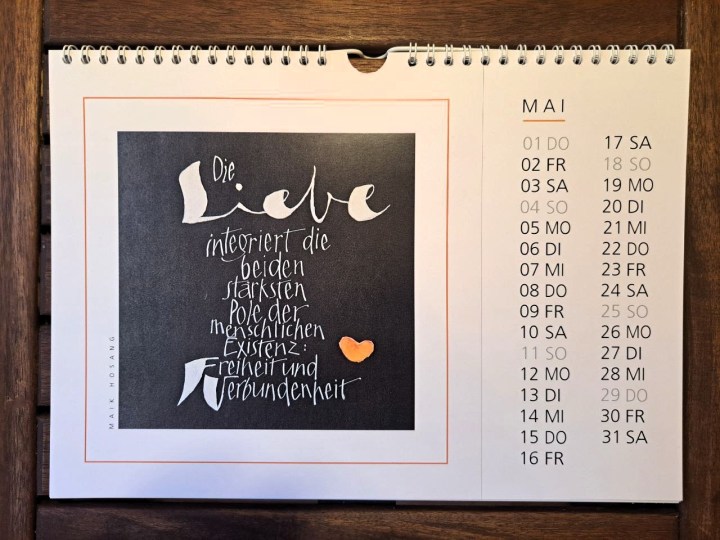 Die
Liebe
integriert die
beiden
stärksten
Pole der
menschlichen
Existenz:
Freiheit und
Verbundenheit
MAIK HOSANG
MAI
01 DO
02 FR
03 SA
04 SO
05 MO
06 DI
07 MI
08 DO
09 FR
10 SA
11 SO
12 MO
13 DI
14 MI
15 DO
16 FR
17 SA
18 SO
19 MO
20 DI
21 MI
22 DO
23 FR
24 SA
25 SO
26 MO
27 DI
28 MI
29 DO
30 FR
31 SA